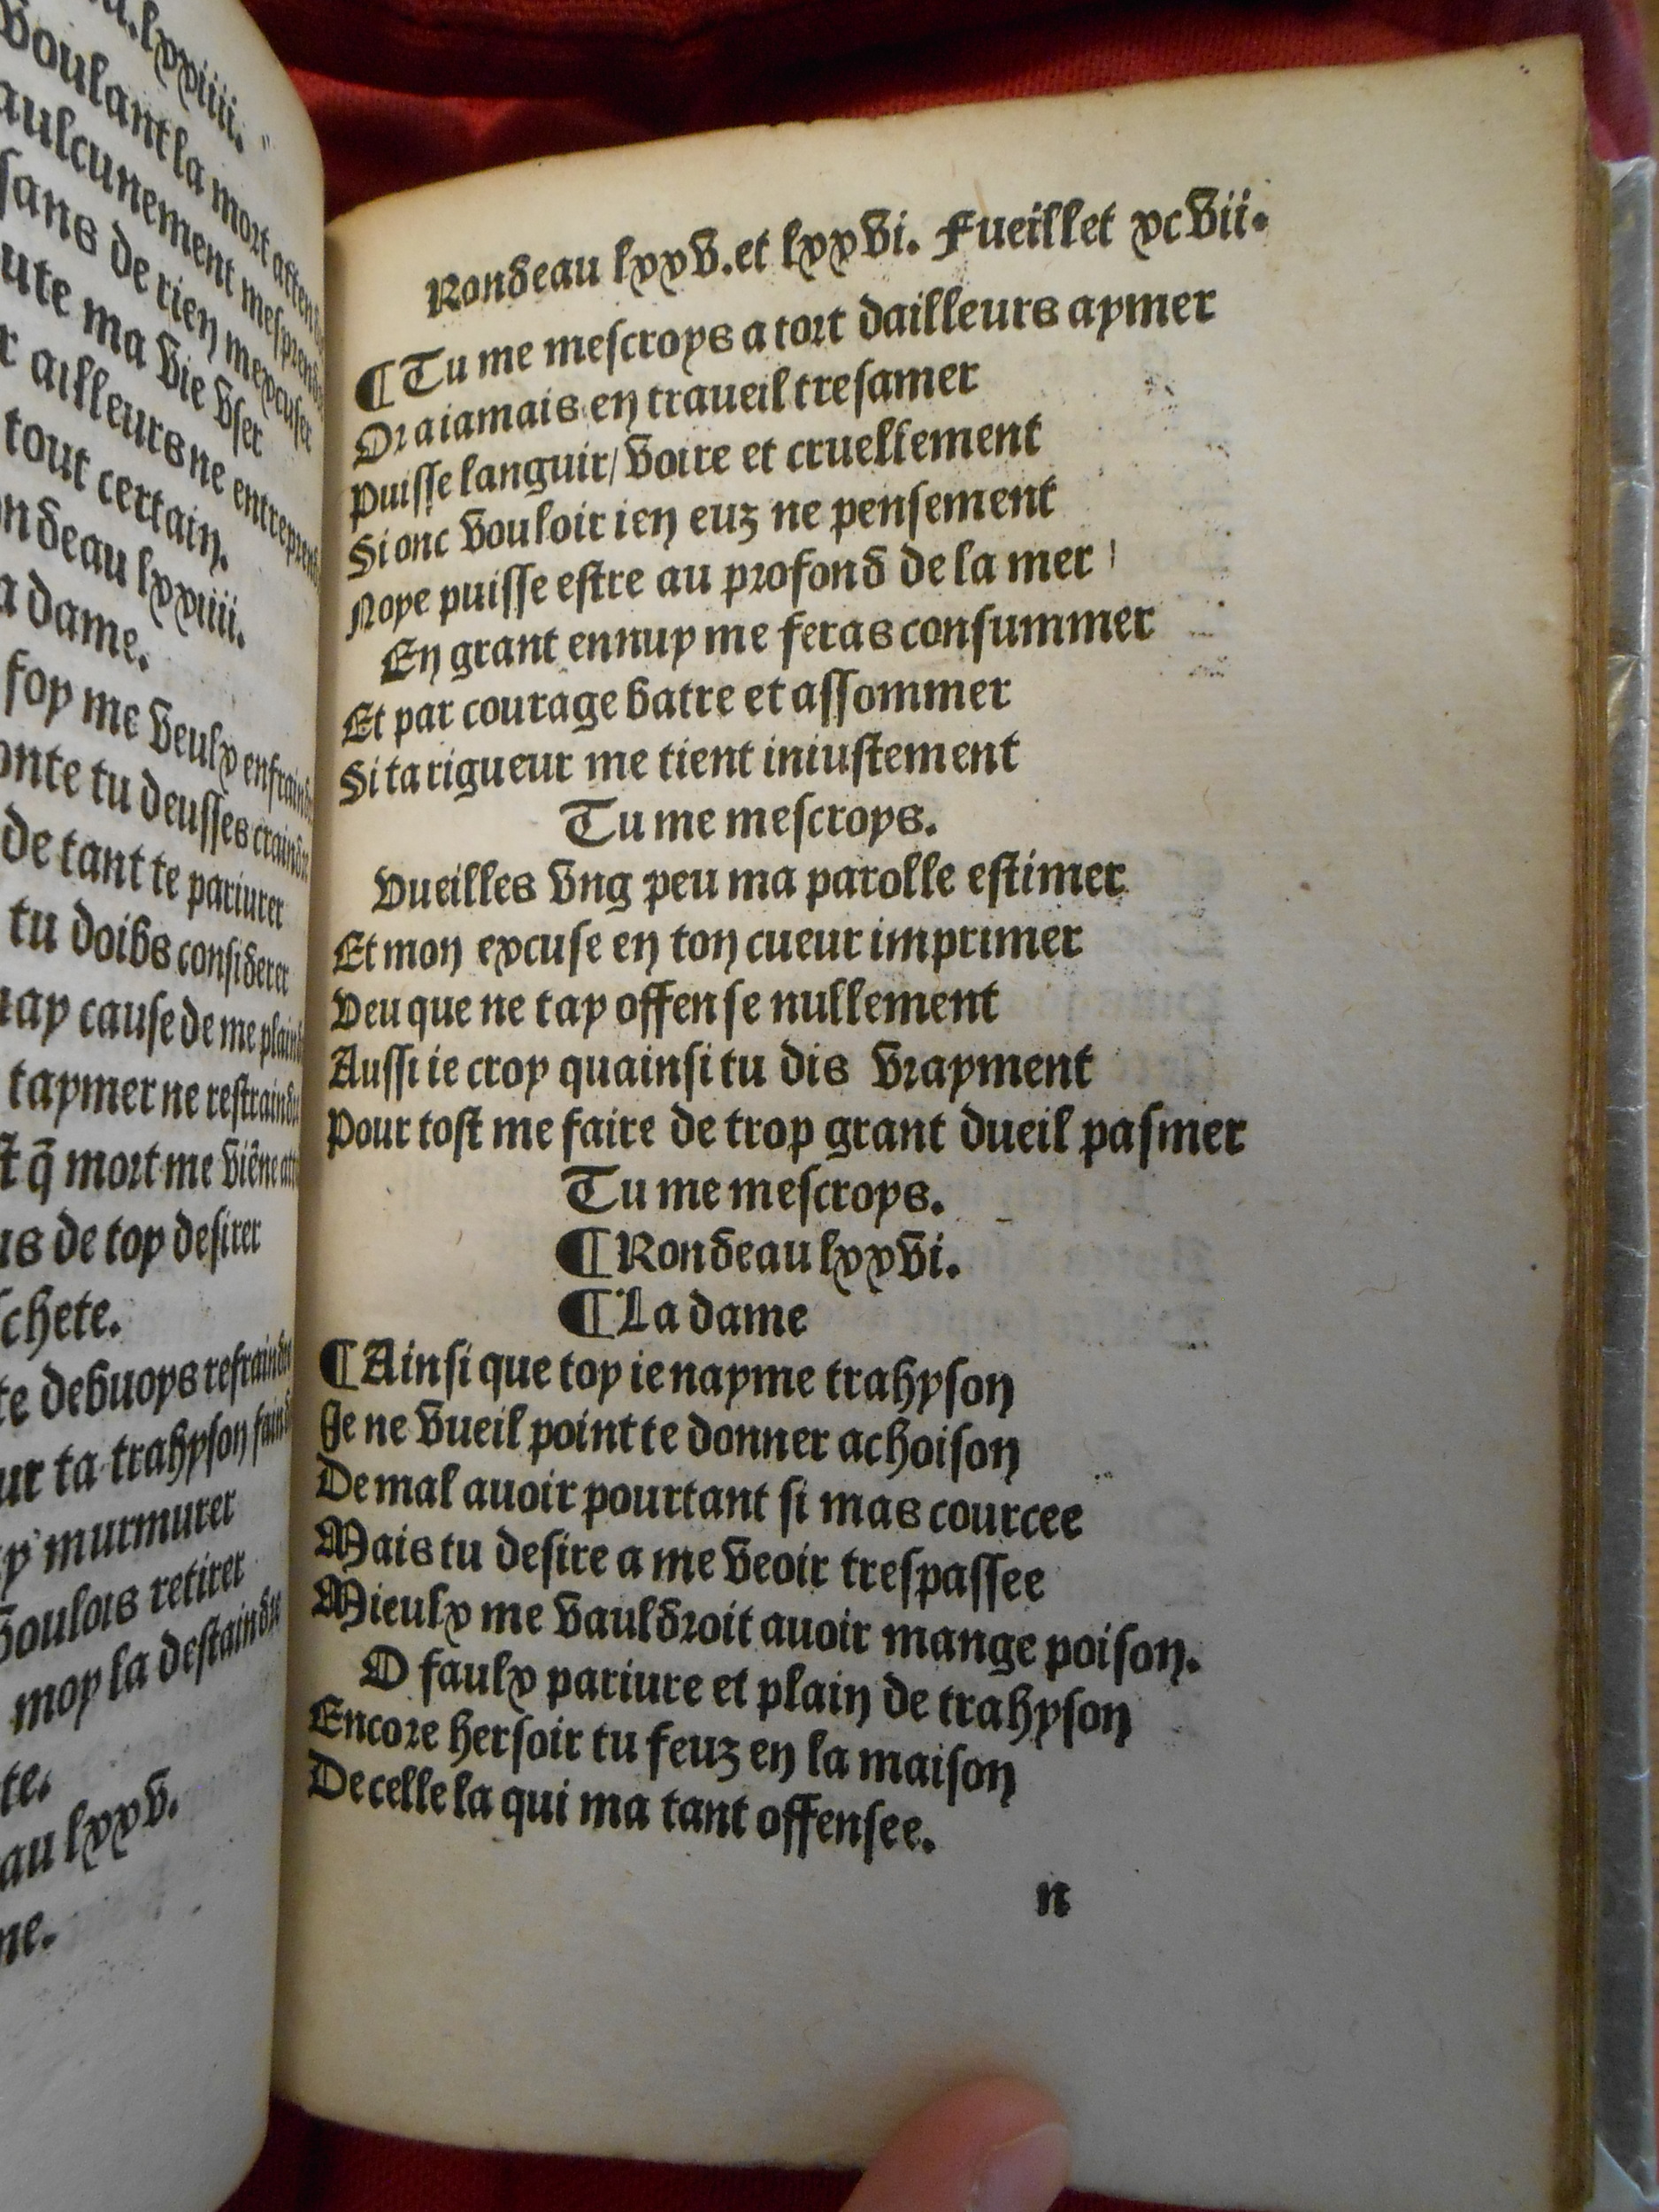 u.lxxiiii.
Voulant la mort
aulcunement
sans de rien mexcuser
ute ma vie vser
r ailleurs ne
tout certain.
ondeau lxxiiii.
a dame.
foy me veulx
onte tu deusses
de tant te pariurer
tu doibs considerer
nay cause de me
taymer ne
st q̃ mort me viẽne
us de toy desirer
schete.
te debuoys
ur ta trahyson
y murmurer
voulois retirer
moy la
te.
au lxxv.
me.
Rondeau lxxv. et lxxvi. Fueillet xcvii.
¶ Tu me mescroys a tort dailleurs aymer
Or aiamais en traueil tresamer
Puisse languir/ voire et cruellement
Si onc vouloir ien euz ne pensement
Noye puisse estre au profond de la mer
En grant ennuy me feras consummer
Et par courage batre et assommer
Si ta rigueur me tient iniustement
Tu me mescroys.
Vueilles vng peu ma parolle estimer
Et mon excuse en ton cueur imprimer
Veu que ne tay offense nullement
Aussi ie croy quainsi tu dis vrayment
Pour tost me faire de trop grant dueil pasmer
Tu me mescroys.
¶ Rondeau lxxvi.
¶ La dame
¶ Ainsi que toy ie nayme trahyson
Je ne vueil point te donner achoison
De mal auoir pourtant si mas courcee
Mais tu desire a me veoir trespassee
Mieulx me vauldroit auoir mange poison.
O faulx pariure et plain de trahyson
Encore hersoir tu feuz en la maison
De celle la qui ma tant offensee.
n